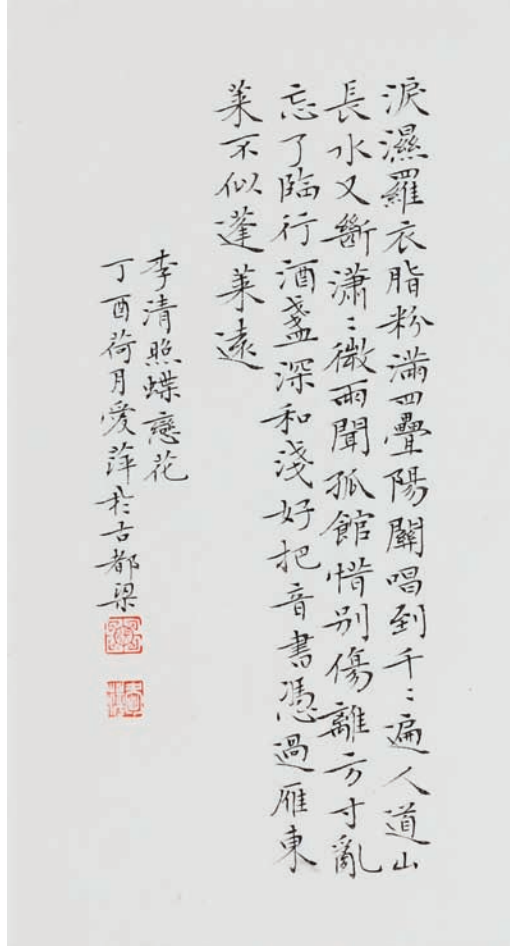 淚濕羅衣脂粉滿四疊陽關唱到千〻遍人道山
長水又斷瀟〻微雨聞孤館惜别傷離方寸亂
忘了臨行酒盞深和淺好把音書憑過雁東
萊不似蓬萊遠
李清照蝶戀花
丁酉荷月愛萍於古都梁